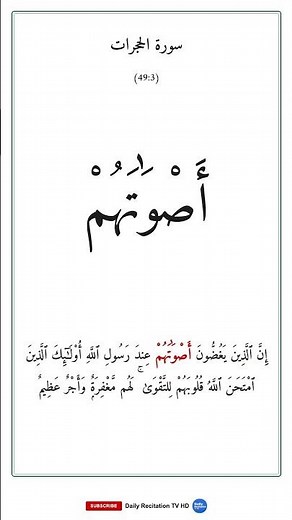 سورة الحجرات
(49:3)
أَصْوَٰتَهُمْ
إِنَّ ٱلَّذِينَ يَغُضُّونَ أَصْوَٰتَهُمْ عِندَ رَسُولِ ٱللَّهِ أُو۟لَـٰٓئِكَ ٱلَّذِينَ
ٱمْتَحَنَ ٱللَّهُ قُلُوبَهُمْ لِلتَّقْوَىٰ ۚ لَهُم مَّغْفِرَةٌ وَأَجْرٌ عَظِيمٌ
SUBSCRIBE Daily Recitation TV HD